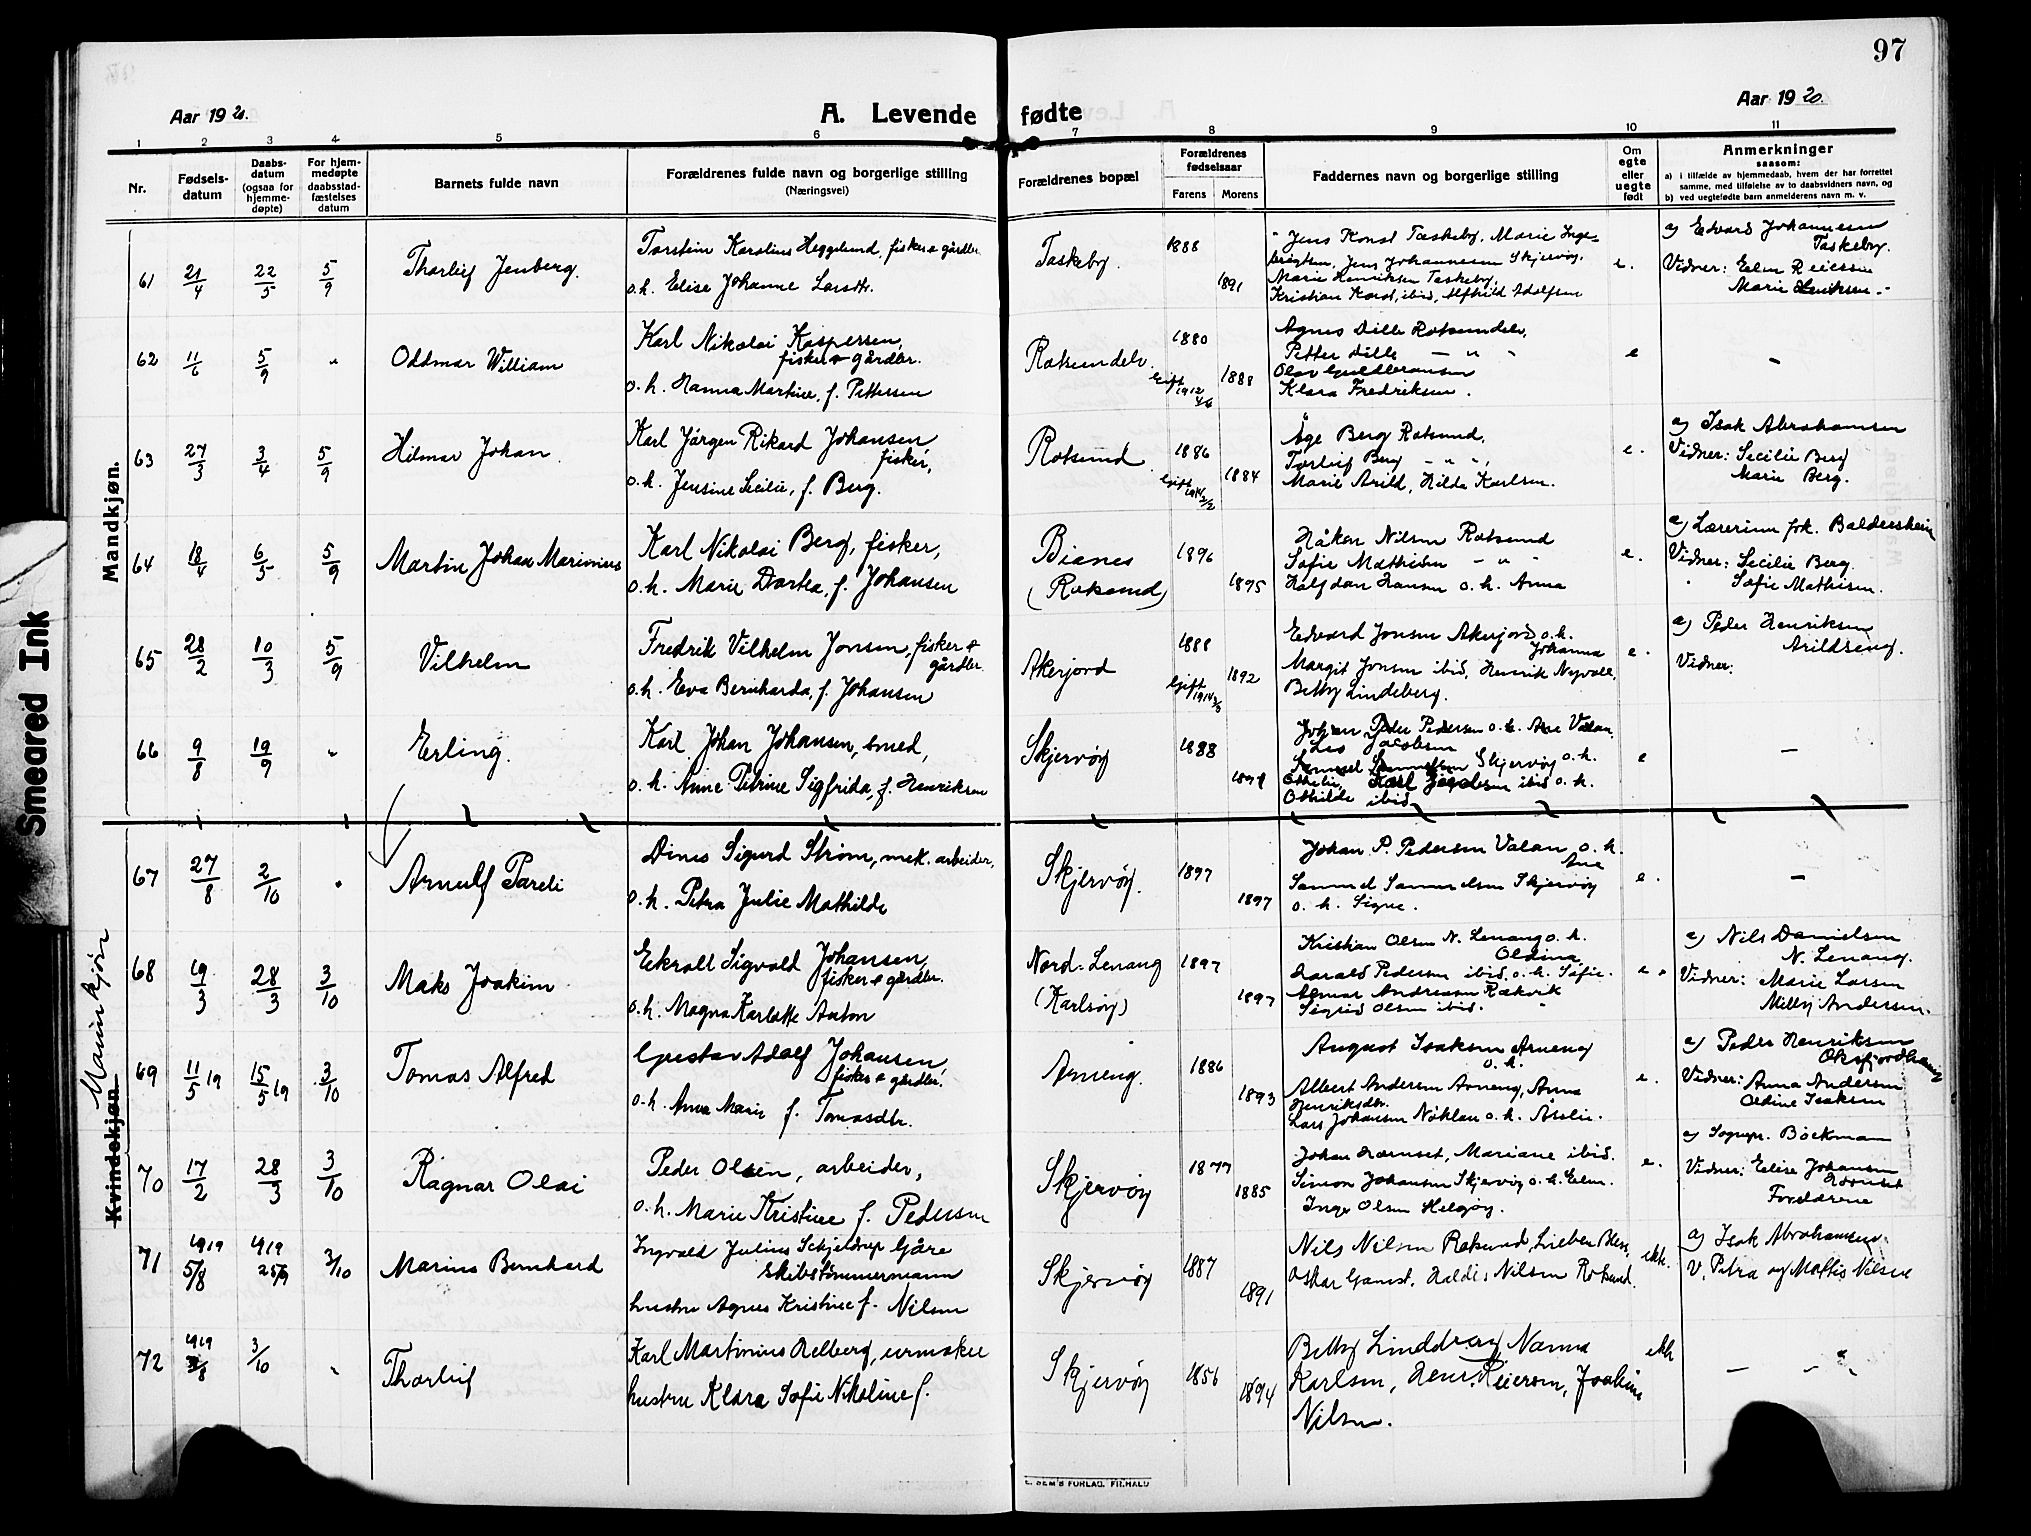 97
Aar 1920.
A. Levende fødte
Aar 1920.
1 2 3 4 5 6 7 8 9 10 11
Nr.
Fødsels-
datum
Daabs-
datum
(ogsaa for
hjemme-
døpte)
For hjem-
medøpte
daabsstad-
fæstelses
datum
Barnets fulde navn
Forældrenes fulde navn og borgerlige stilling
(Næringsvei)
Forældrenes bopæl
Forældrenes
fødselsaar
Farens Morens
Faddernes navn og borgerlige stilling
Om
egte
eller
uegte
født
Anmerkninger
saasom:
a) i tilfælde av hjemmedaab, hvem der har forrettet
samme, med tilføielse av to daabsvidners navn, og
b) ved uegtefødte barn anmelderens navn m. v.
Mandkjøn.
61 21/4 22/5 5/9 Thorleif Jenberg.
Torstein Karolius Heggelund, fisker & gårdbr.
o.h. Elise Johanne Larsdtr.
Taskeby. 1888 1891
Jens Konst Taskeby, Marie Inge-
brigtsen, Jens Johannesen Skjervöy,
Marie Henriksen Taskeby,
Kristian Konst, ibid, Alfhild Adolfsen
e.
a) Edvard Johannesen
Taskeby.
Vidner: Elen Reiersen
Marie Henriksen.
62 11/6 5/9 " Oddmar William
Karl Nikolai Kaspersen,
fisker & gårdbr.
o.h. Hanna Martine, f. Pettersen
Rotsundelv. 1880 1888
Gift 1912 4/6
Agnes Dille Rotsundelv,
Petter Dille — " "
Olav Guldbransen
Klara Fredriksen.
e —
63 27/3 3/4 5/9 Hilmar Johan.
Karl Jörgen Rikard Johansen,
fisker,
o.h. Jensine Secilie, f. Berg.
Rotsund. 1886 1884
Gift
Åge Berg Rotsund,
Torleif Berg — " ",
Marie Arild, Hilda Karlsen.
e.
a) Isak Abrahamsen
Vidner: Secilie Berg
Marie Berg.
64 18/4 6/5 5/9 Martin Johan Marinius
Karl Nikolai Berg, fisker,
o.h. Marie Dortea, f. Johansen
Bianes
(Rotsund) 1896 1895
Håkon Nilsen Rotsund
Sofie Mathisen — " "
Halfdan Hansen o.h. Anna
e.
a) Lærerinne frk. Baldersheim
Vidner: Secilie Berg.
Sofie Mathisen.
65 28/2 10/3 5/9 Vilhelm
Fredrik Vilhelm Jonsen, fisker &
gårdbr.
o.h. Eva Bernharda, f. Johansen
Akerjord 1888 1892
Gift
Edvard Jonsen Akerjord o.h.
Johanna
Margit Jonsen ibid, Henrik Nyvoll,
Betty Lindeberg.
e.
a) Peder Henriksen
Arildseng.
Vidner:
66 9/8 19/9 " Erling.
Karl Johan Johansen, smed,
o.h. Anne Petrine Sigfrida, f. Henriksen
Skjervöy 1888
Johan Peder Pedersen o.h. Ane Valan,
Jacobsen
Samuel Samuelsen Skjervöy o.h.
Karl Jacobsen ibid o.h.
Othilde ibid
e —
Mannkjön
Kvindekjøn.
67 27/8 2/10 " Arnulf Pareli
Dines Sigurd Ström, mek. arbeider,
o.h. Petra Julie Mathilde
Skjervöy. 1897 1897
Johan P. Pedersen Valan o.h.
Ane
Samuel Samuelsen Skjervöy
o.h. Signe.
e. —
68 19/3 28/3 3/10 Maks Joakim
Ekrall Sigvald Johansen,
fisker & gårdbr.
o.h. Magna Karlotte Anton
Nord-Lenang
(Karlsöy) 1897 1897
Kristian Olsen N. Lenang o.h.
Oldina,
Harald Pedersen ibid. o.h. Sofie.
Almar Andreasen Rakvik
Sigrid Olsen ibid.
e.
a) Nils Danielsen
N. Lenang.
Vidner: Marie Larsen
Milly Andersen.
69 11/5 19 15/5 19 3/10 Tomas Alfred
Gustav Adolf Johansen,
fisker & gårdbr.
o.h. Anna Marie f. Tomasdtr.
Arneng. 1886 1893
August Isaksen Arneng
o.h.
Albert Andersen Arneng, Anna
Henriksdtr.
Lars Johansen Nöklan o.h. Aselie.
e.
a) Peder Henriksen
Oksfjordhamn
Vidner: Anna Andersen
Oldine Isaksen
70 17/2 28/3 3/10 Ragnar Olai
Peder Olsen, arbeider,
o.h. Marie Kristine f. Pedersen
Skjervöy 1877 1885
Johan Hornset, Mariane ibid.
Simon Johansen Skjervöy o.h. Elen.
Inge Olsen Helgöy.
e.
a) Sogupr. Böckman
Vidner: Elise Johansen
Hornset
Forældrene
71 1919 5/8 1919 25/9 3/10 Marius Bernhard
Ingvald Julius Schjeldrup Gåre
Skibstömmermann
hustru Agnes Kristine f. Nilsen
Skjervöy 1887 1891
Nils Nilsen Rotsund,
Oskar Gamst, Haldis Nilsen Rotsund.
ekt.
a) Isak Abrahamsen
V. Petra og Mattis Nilsen
72 1919 3/10 " Thorleif
Karl Martinius Relberg, urmaker
hustru Klara Sofie Nikoline f.
Skjervöy 1856 1894
Betty Lindberg, Nanna
Karlsen, Henr. Reiersen, Joakim
Nilsen.
ekt
— " —
E. SEM'S FORLAG, FR.HALD
Smeared Ink